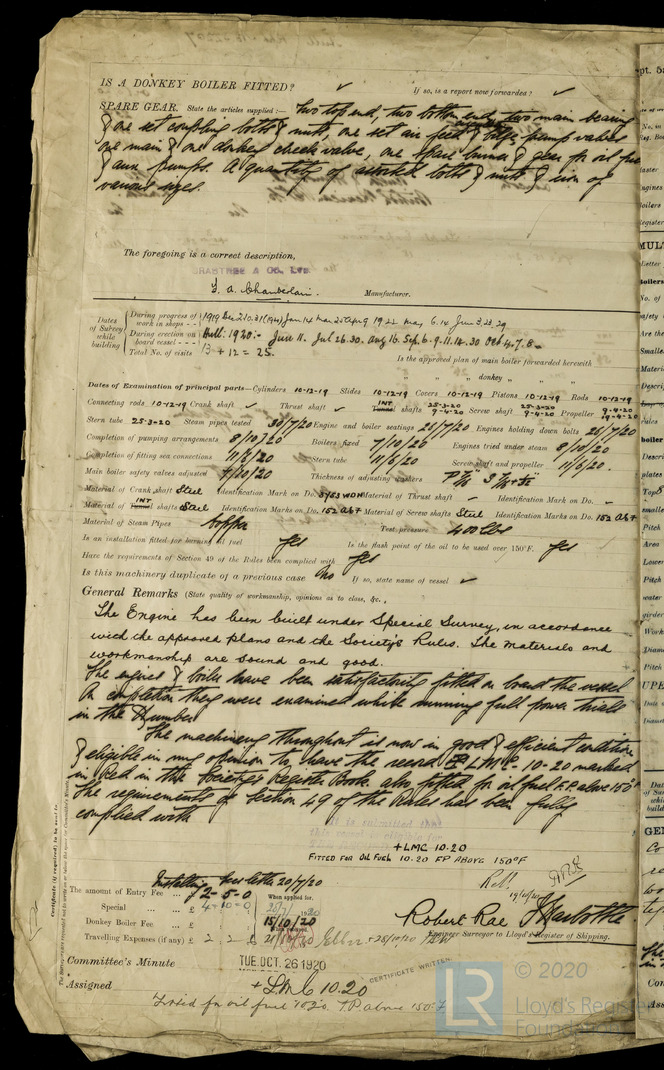 IS A DONKEY BOILER FITTED? ✓ If so, is a report now forwarded? ✓
SPARE GEAR. State the articles supplied:— Two top end, two bottom end, two main bearing
& one set coupling bolts & nuts, one set air feed & bilge pump valves
one main & one donkey check valve, one spare burner & gear for oil fuel
& aux pumps. A quantity of assorted bolts & nuts & iron of
various sizes.
The foregoing is a correct description,
CRABTREE & Co., Ltd.
F. A. Chamberlain. Manufacturer.
Dates of Survey while building
During progress of work in shops - -
During erection on board vessel - - - Hull: 1920:- June 11. Jul 26.30. Aug 16. Sep. 6.9.11.14.30 Oct 4.7.8
Total No. of visits 13 + 12 = 25. Is the approved plan of main boiler forwarded herewith
" " " donkey " " "
Dates of Examination of principal parts—Cylinders 10-12-19 Slides 10-12-19 Covers 10-12-19 Pistons 10-12-19 Rods 10-12-19
Connecting rods 10-12-19 Crank shaft ✓ Thrust shaft ✓ INT Tunnel shafts 25-3-20 9-4-20 Screw shaft 25-3-20 9-4-20 Propeller 9-4-20
Stern tube 25-3-20 Steam pipes tested 30/7/20 Engine and boiler seatings 26/7/20 Engines holding down bolts 26/7/20
Completion of pumping arrangements 8/10/20 Boilers fixed 7/10/20 Engines tried under steam 8/10/20
Completion of fitting sea connections 11/6/20 Stern tube 11/6/20 Screw shaft and propeller 11/6/20
Main boiler safety valves adjusted 7/10/20 Thickness of adjusting washers
Material of Crank shaft Steel Identification Mark on Do. 3763 WON Material of Thrust shaft ✓ Identification Mark on Do. ✓
Material of INT Tunnel shafts Steel Identification Marks on Do. 152 AB7 Material of Screw shafts Steel Identification Marks on Do. 152 AB7
Material of Steam Pipes Copper Test pressure 400 lbs
Is an installation fitted for burning oil fuel Yes Is the flash point of the oil to be used over 150°F. Yes
Have the requirements of Section 49 of the Rules been complied with Yes
Is this machinery duplicate of a previous case No If so, state name of vessel ✓
General Remarks (State quality of workmanship, opinions as to class, &c.,
The Engine has been built under Special Survey, in accordance
with the approved plans and the Society's Rules. The materials and
workmanship are sound and good.
The engines & boiler have been satisfactorily fitted on board the vessel
On completion they were examined whilst running full power trials
in the Humber
The machinery throughout is now in good & efficient condition
& eligible in my opinion to have the record + LMC 10-20 marked
in Red in the Society's Register Book. also fitted for oil fuel F.P. above 150°F
The requirements of Section 49 of the Rules has been fully
complied with
It is submitted that
this vessel is eligible for
+ LMC 10.20
FITTED FOR OIL FUEL 10.20 FP ABOVE 150°F
Certificate (if required) to be sent to
Installing fees letter 20/7/20
The amount of Entry Fee ... £ 2-5-0 When applied for,
Special ... ... £ 4-10-0
Donkey Boiler Fee ... £ 15/10/20
Travelling Expenses (if any) £ 2 2 0
Robert Rae
Engineer Surveyor to Lloyd's Register of Shipping.
Committee's Minute TUE. OCT. 26 1920
CERTIFICATE WRITTEN
Assigned + LMC 10.20
Fitted for oil fuel 10.20. F.P. above 150°F
LR
© 2020
Lloyd's Register
Foundation